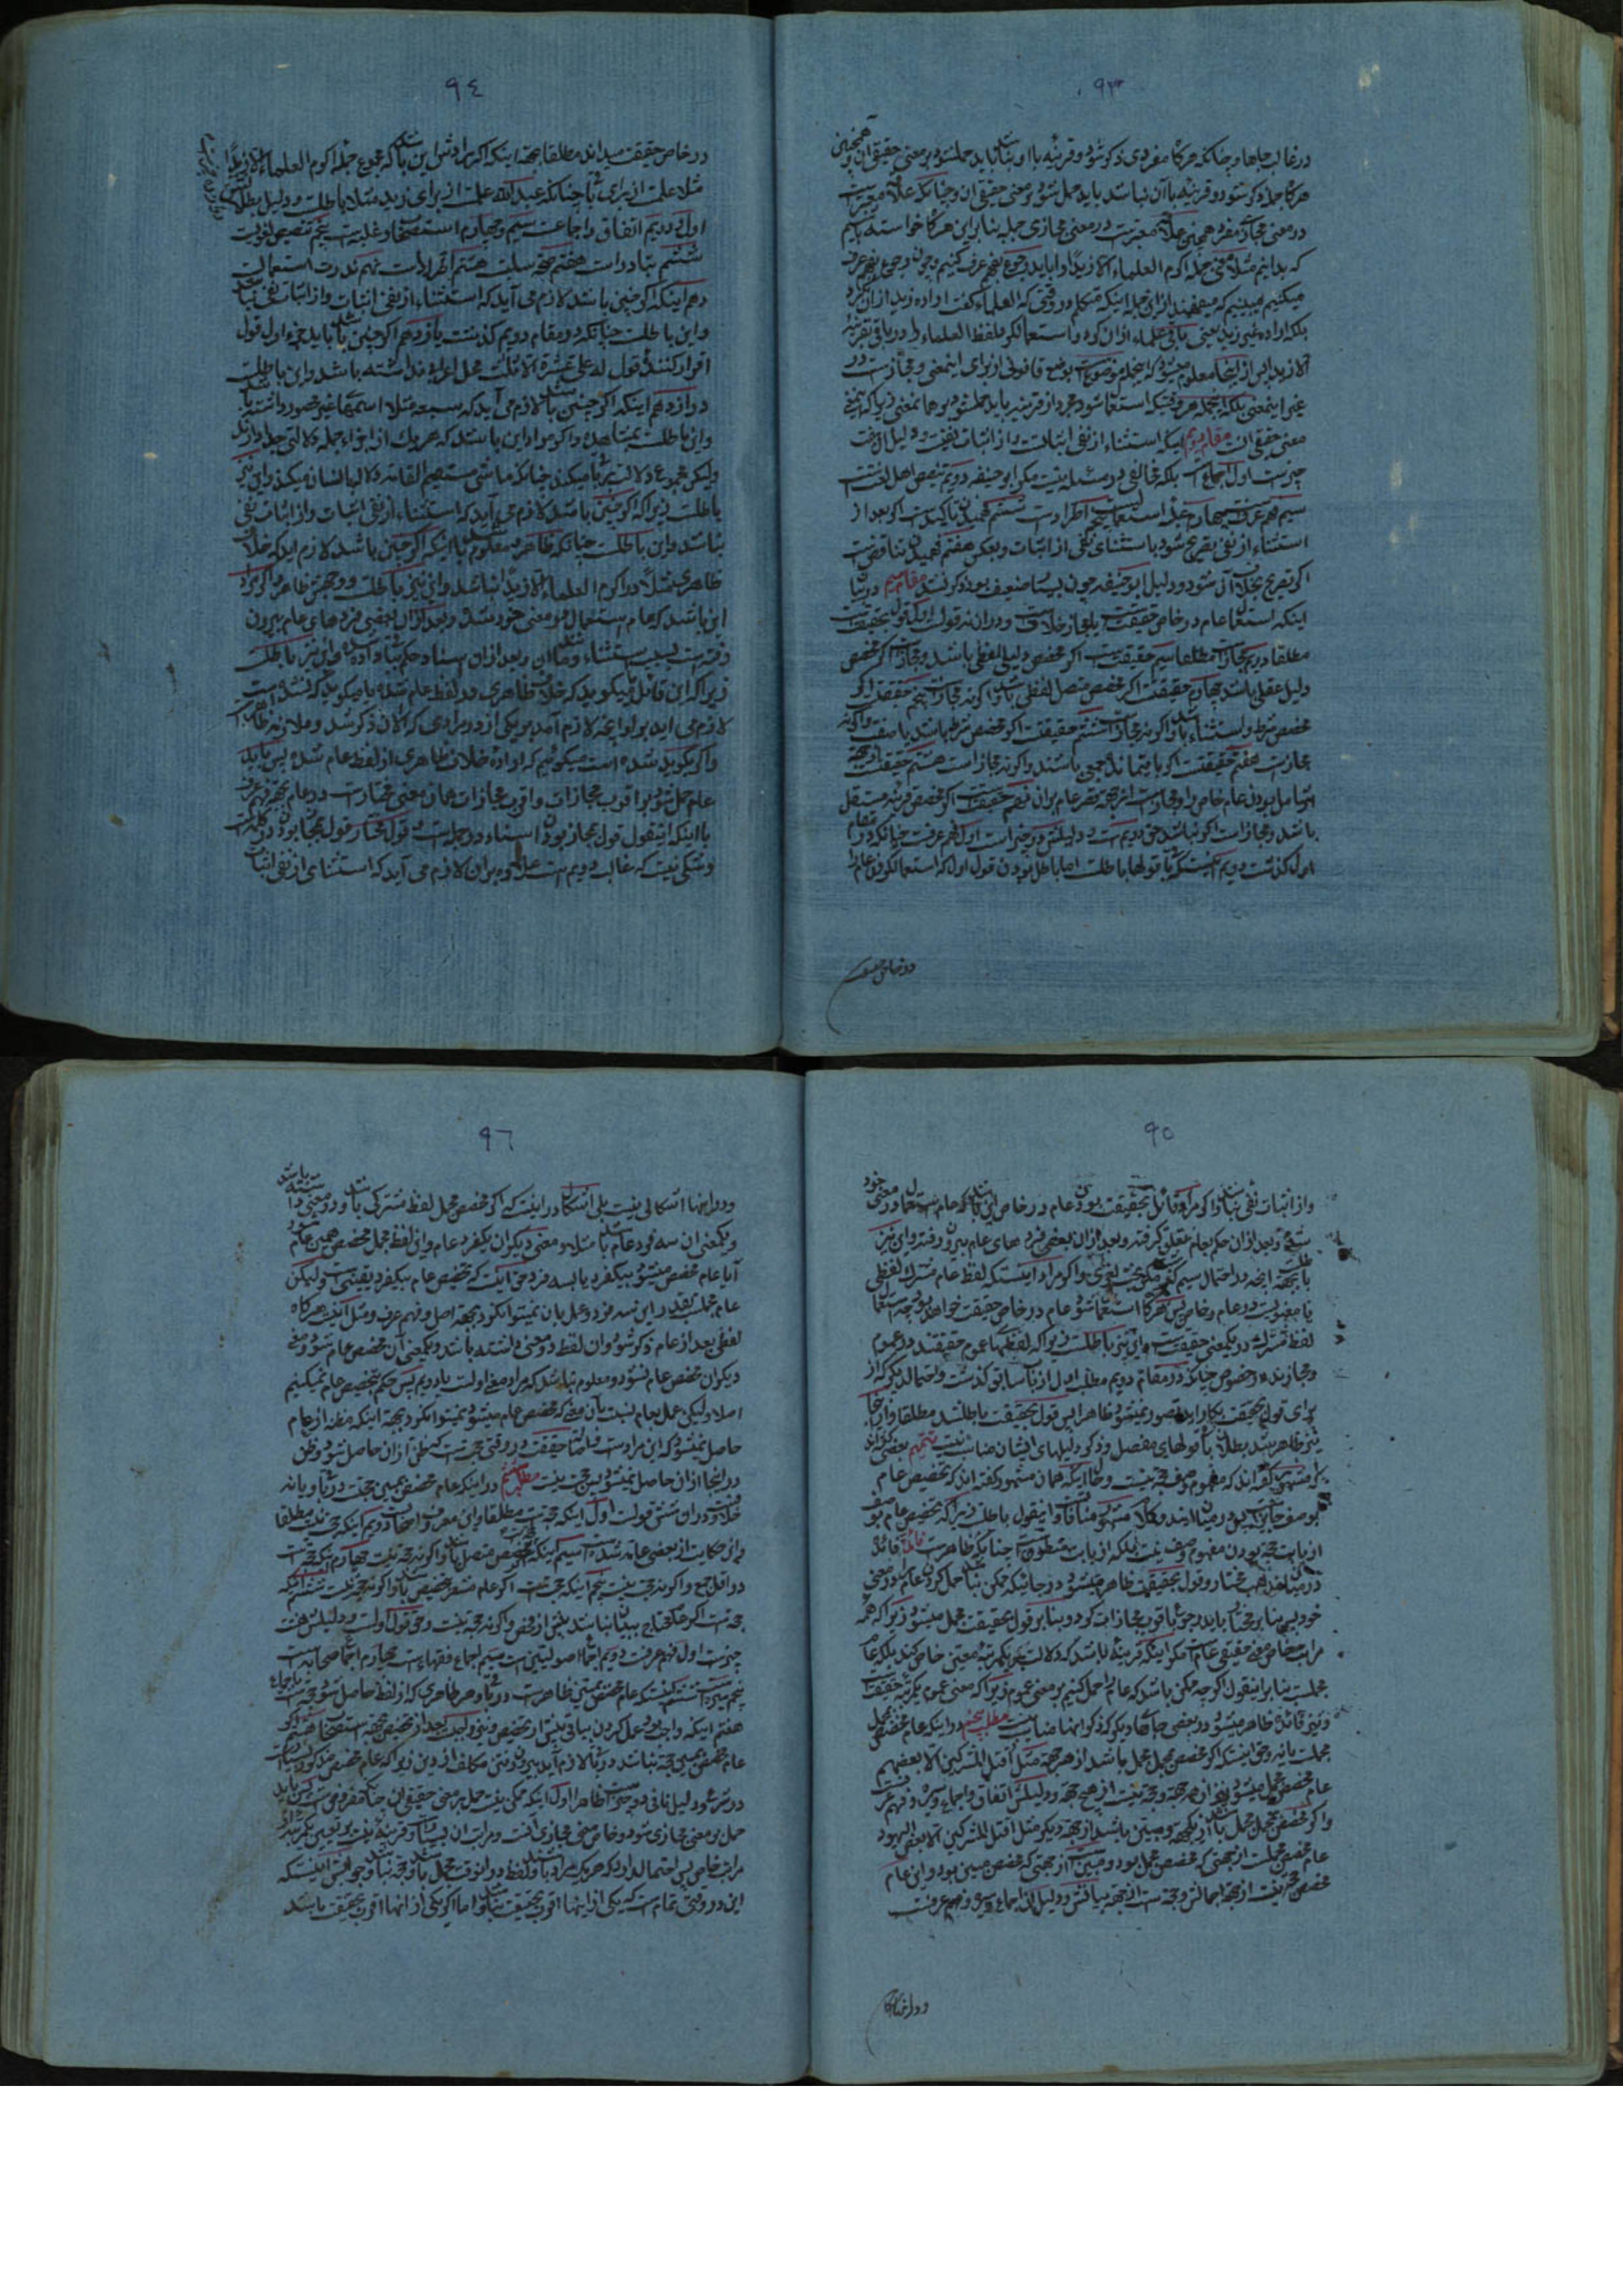 ٩٣
در غالب جاها و چنانکه هرگاه مفردی ذکر شود و قرینه با او نباشد باید حمل شود بر معنی حقیقی آن همچنین
هرگاه جمله ذکر شود و قرینه با آن نباشد باید حمل شود بر معنی حقیقی آن و چنانکه علاقه معتبر است
در معنی مجازی مفرد همچنین علاقه معتبر است در معنی مجازی جمله بنا بر این هرگاه خواسته باشیم
که بدانیم مثلا معنی جمله اکرم العلماء الا زیدا را باید رجوع بفهم عرف کنیم و چون رجوع بفهم عرف
میکنیم میبینیم که میفهمند از این جمله اینکه متکلم در وقتی که العلماء گفت اراده زید از آن نکرد
بلکه اراده غیر زید یعنی باقی علماء از آن کرده و استعمال کرد لفظ العلماء را در باقی بقرینه
الا زیدا پس از اینجا معلوم میشود که این جمله موضوع است بوضع قانونی از برای این معنی و مجاز است در
غیر این معنی بلکه این جمله هر وقتیکه استعمال شود مجرد از قرینه باید حمل شود بر همین معنی زیرا که این معنی
معنی حقیقی آن است مقام دویم اینکه استثناء از نفی اثبات است و از اثبات نفی است و دلیل آن هفت
چیز است اول اجماع است بلکه مخالفی در مسئله نیست مگر ابو حنیفه دویم تنصیص اهل لغت است
سیم فهم عرف است چهارم غلبه استعمال است پنجم اطراد است ششم فهمیدن تاکید است اگر بعد از
استثناء از نفی تصریح شود باستثنای نفی از اثبات و بعکس هفتم فهمیدن تناقض است
اگر تصریح بخلاف آن شود و دلیل ابو حنیفه چون بسیار ضعیف بود ذکر نشد مقام سیم در بیان
اینکه استعمال عام در خاص حقیقت است یا مجاز خلاف است و در آن نه قول است اول حقیقت است
مطلقا دویم مجاز است مطلقا سیم حقیقت است اگر مخصص دلیل لفظی باشد و مجاز است اگر مخصص
دلیل عقلی باشد چهارم حقیقت است اگر مخصص متصل لفظی باشد و اگر نه مجاز است پنجم حقیقت است اگر
مخصص شرط و استثناء باشد و اگر نه مجاز است ششم حقیقت است اگر مخصص شرط باشد یا صفت و اگر نه
مجاز است هفتم حقیقت است اگر باقیمانده جمعی باشند و اگر نه مجاز است هشتم حقیقت است از جهة
شامل بودن عام خاص را و مجاز است از جهة قصر عام بر آن نهم حقیقت است اگر مخصص قرینه مستقل
باشد و مجاز است اگر نباشد حق دویم است و دلیلش دو چیز است اول فهم عرف است چنانکه در مقام
اول گذشت دویم اینستکه باقی قولها باطل است اما باطل بودن قول اول که استعمال عام را
در خاص حقیقت
٩٤
در خاص حقیقت میداند مطلقا بجهة اینکه اگر مرادش این باشد که مجموع جمله اکرم العلماء الا زیدا
مثلا علمست از برای باقی چنانکه عبد الله علمست از برای زید مثلا باطلست و دلیل بطلانش
اول و دویم اتفاق و اجماعست سیم و چهارم استصحاب و غلبه است پنجم تنصیص لغویست
ششم تبادر است هفتم صحة سلبست هشتم اطرادات نهم ندرت استعمالست
دهم اینکه اگر چنین باشد لازم می آید که استثناء از نفی اثبات و از اثبات نفی نباشد
و این باطلست چنانکه در مقام دویم گذشت یازدهم اگر چنین باشد باید جزء اول قول
اقرار کننده قول له علی عشرة الا ثلث محل اعراب نداشته باشد و این باطلست
دوازدهم اینکه اگر چنین باشد لازم می آید که سبعه مثلا اسمهای غیر محصور داشته باشد
و این باطلست بمشاهده و اگر مراد این باشد که هر یک از اجزاء جمله دلالتی جدا دارند
ولیکن مجموع دلالت بر باقی میکند چنانکه ماشی مستقیم القامة دلالت بانسان میکند و این نیز
باطلست زیرا که اگر چنین باشد لازم می آید که استثناء از نفی اثبات و از اثبات نفی
نباشد و این باطلست چنانکه ظاهر و معلوم باشد اینکه اگر چنین باشد لازم آید که خلاف
ظاهری مثلا در اکرم العلماء الا زیدا نباشد و این نیز باطلست و وجهش ظاهر و اگر مراد
این باشد که عام مستعمل در معنی خود شد و بعد از آن بعضی فردهای عام بیرون
رفته است بسبب استثناء و مانند آن و بعد از آن اسناد حکم باو داده شد و این نیز باطلست
زیرا که این قائل میگوید که خلاف ظاهری در لفظ عام شده یا میگوید که نشده است
لازم می آید بر او آنچه لازم آمد بر یکی از دو مرادی که الآن ذکر شد و ملازمه ظاهر است
و اگر بگوید شده است میگوئیم که اراده خلاف ظاهری از لفظ عام شد پس باید
عام حمل شود بر اقرب مجازات و اقرب مجازات همان معنی مختار است در عام بجهة فهم عرف
با اینکه اینقول قول مجاز بودن اسناد در جمله است و قول مختار قول مجاز بودن در کلمه است
و شکی نیست که غالب دویم است علاوه بر آن لازم می آید که استثنای از نفی اثبات
٩٥
و از اثبات نفی نباشد و اگر مراد قائل بحقیقت بودن عام در خاص این باشد که عام مستعمل در معنی خود
شد و بعد از آن حکم بعام تعلق گرفته و بعد از آن بعضی فرد های عام بیرون رفته و این نیز
یا معنویست در عام و خاص پس هرگاه استعمال شود عام در خاص حقیقت خواهد بود چه استعمال
لفظ مشترک در یکمعنی حقیقت است و این نیز باطلست زیرا که لفظهای عموم حقیقتند در عموم
و مجازند در خصوص چنانکه در مقام دویم مطلب اول از باب سابق گذشت و احتمال دیگر که از
برای قول بحقیقت بکار آید متصور نمیشود ظاهرا پس قول بحقیقت باطل شد مطلقا و از اینجا
نیز ظاهر شد بطلان باقی قولهای مفصل و ذکر دلیلهای ایشان مناسب نیست تتمیم بعضی از آنان
که مشهوری گفته اند که مفهوم وصف حجة نیست و حال آنکه همان مشهور گفته اند که تخصیص عام
بوصف جایز است پس در میان این دو کلام مشهور منافات است و اینقول باطلست زیرا که تخصیص عام بوصف
از باب حجة بودن مفهوم وصف نیست بلکه از باب منطوق است چنانکه ظاهر است فائدة فائده
در میان مذهب مختار و قول بحقیقت ظاهر میشود در جائیکه ممکن نباشد حمل کردن عام بر معنی
خود پس بنا بر مختار باید رجوع باقرب مجازات کرد و بنا بر قول بحقیقت مجمل میشود زیرا که همه
مراتب خاص معنی حقیقی عام است مگر اینکه قرینه باشد که دلالت بر یکمرتبه معینی خاص کند بلکه عام
مجملست بنا بر اینقول اگر چه ممکن باشد که عام را حمل کنیم بر معنی عموم زیرا که معنی عموم یکمرتبه حقیقت است
و نیز فائده ظاهر میشود در بعضی جاهای دیگر که ذکر آنها مناسب نیست مطلب پنجم در اینکه عام مخصص بمجمل
مجملست یا نه و حق اینستکه اگر مخصص مجمل باشد از هر جهة مثل اقتل المشرکین الا بعضهم
عام مخصص مجمل میشود نیز از هر جهة و حجة نیست از هیچ جهة و دلیلش اتفاق و اجماع و سیره و فهم عرفست
و اگر مخصص مجمل باشد از یکجهة و مبین باشد از جهة دیگر مثل اقتل المشرکین الا بعض الیهود
عام مخصص مجملست از جهتی که مخصص مجمل بود و مبین است از جهتی که مخصص مبین بود و این عام
مخصص حجة نیست از جهة اجمالش و حجة است از جهة بیانش و دلیل آن اجماع و سیره و فهم عرفست
و در اینها
٩٦
و در اینها اشکالی نیست بلی اشکال در اینست که اگر مخصص مجمل لفظ مشترکی باشد و دو معنی داشته باشد
و یکمعنی آن سه فرد عام باشد مثلا و معنی دیگر آن یکفرد عام و این لفظ مجمل مخصص همین عام شود
آیا عام مخصص میشود بیکفرد یا بسه فرد حق اینست که تخصیص عام بیکفرد یقینی است ولیکن
عام مجملست بقدر این سه فرد و عمل بآن نمیتوان کرد بجهة اصل و فهم عرف و مثل اینست هرگاه
لفظی بعد از عام ذکر شود و آن لفظ دو معنی داشته باشد و یکمعنی آن مخصص عام شود و معنی
دیگر آن مخصص عام نشود و معلوم نباشد که مراد معنی اولست یا دویم پس حکم بتخصیص عام نمیکنیم
اصلا ولیکن عمل بعام نسبت بآن معنی که مخصص عام میشود نمیتوان کرد بجهة اینکه مظنه از عام
حاصل نمیشود که این مراد است و اصالة حقیقت در وقتی حجة است که ظنی از آن حاصل شود و ظن
در اینجا از آن حاصل نمیشود پس حجة نیست مطلب ششم در اینکه عام مخصص بمبین حجت در باقی است یا نه
خلافست و در آن شش قولست اول اینکه حجة است مطلقا و این معروف اصحابست دویم اینکه حجة نیست مطلقا
و این حکایت از بعضی عامه شده است سیم اینکه حجة است اگر مخصص متصل باشد و اگر نه حجة نیست چهارم اینکه حجة است
در اقل جمع و اگر نه حجة نیست پنجم اینکه حجة است اگر عام مشعر بتخصیص باشد و اگر نه حجة نیست ششم اینکه
حجة است اگر عام محتاج ببیان نباشد پیش از مخصص و اگر نه حجة نیست و حق قول اولست و دلیلش هفت
چیز است اول فهم عرفست دویم اجماع اصولیین است سیم اجماع فقهاء است چهارم اجماع صحابه است
پنجم سیره است ششم اینستکه عام مخصص بمبین ظاهر است در باقی و هر ظاهری که از لفظ حاصل شود حجة است باجماع
هفتم اینکه واجب بود عمل کردن بباقی پیش از تخصیص و نیز واجبست بعد از تخصیص بجهة استصحاب هشتم اگر
عام مخصص بمبین حجة نباشد در باقی لازم آید بیرون رفتن مکلف از دین زیرا که عام مخصص مذکور بسیار است
در شرع و دلیل نافی دو چیز است ظاهرا اول اینکه ممکن نیست حمل بر معنی حقیقی آن چنانکه مفروض است پس باید
حمل بر معنی مجازی شود و خاص معنی مجازی آنست و مراتب آن بسیار است و قرینه نیست بر تعیین یکمرتبه از
مراتب خاص پس احتمال دارد که هر یک مراد باشد و لفظ در آنوقت مجمل باشد و حجة نباشد و جوابش اینستکه
این در وقتی تمام است که یکی از اینها اقرب بحقیقت نباشد و اما اگر یکی از آنها اقرب بحقیقت باشد